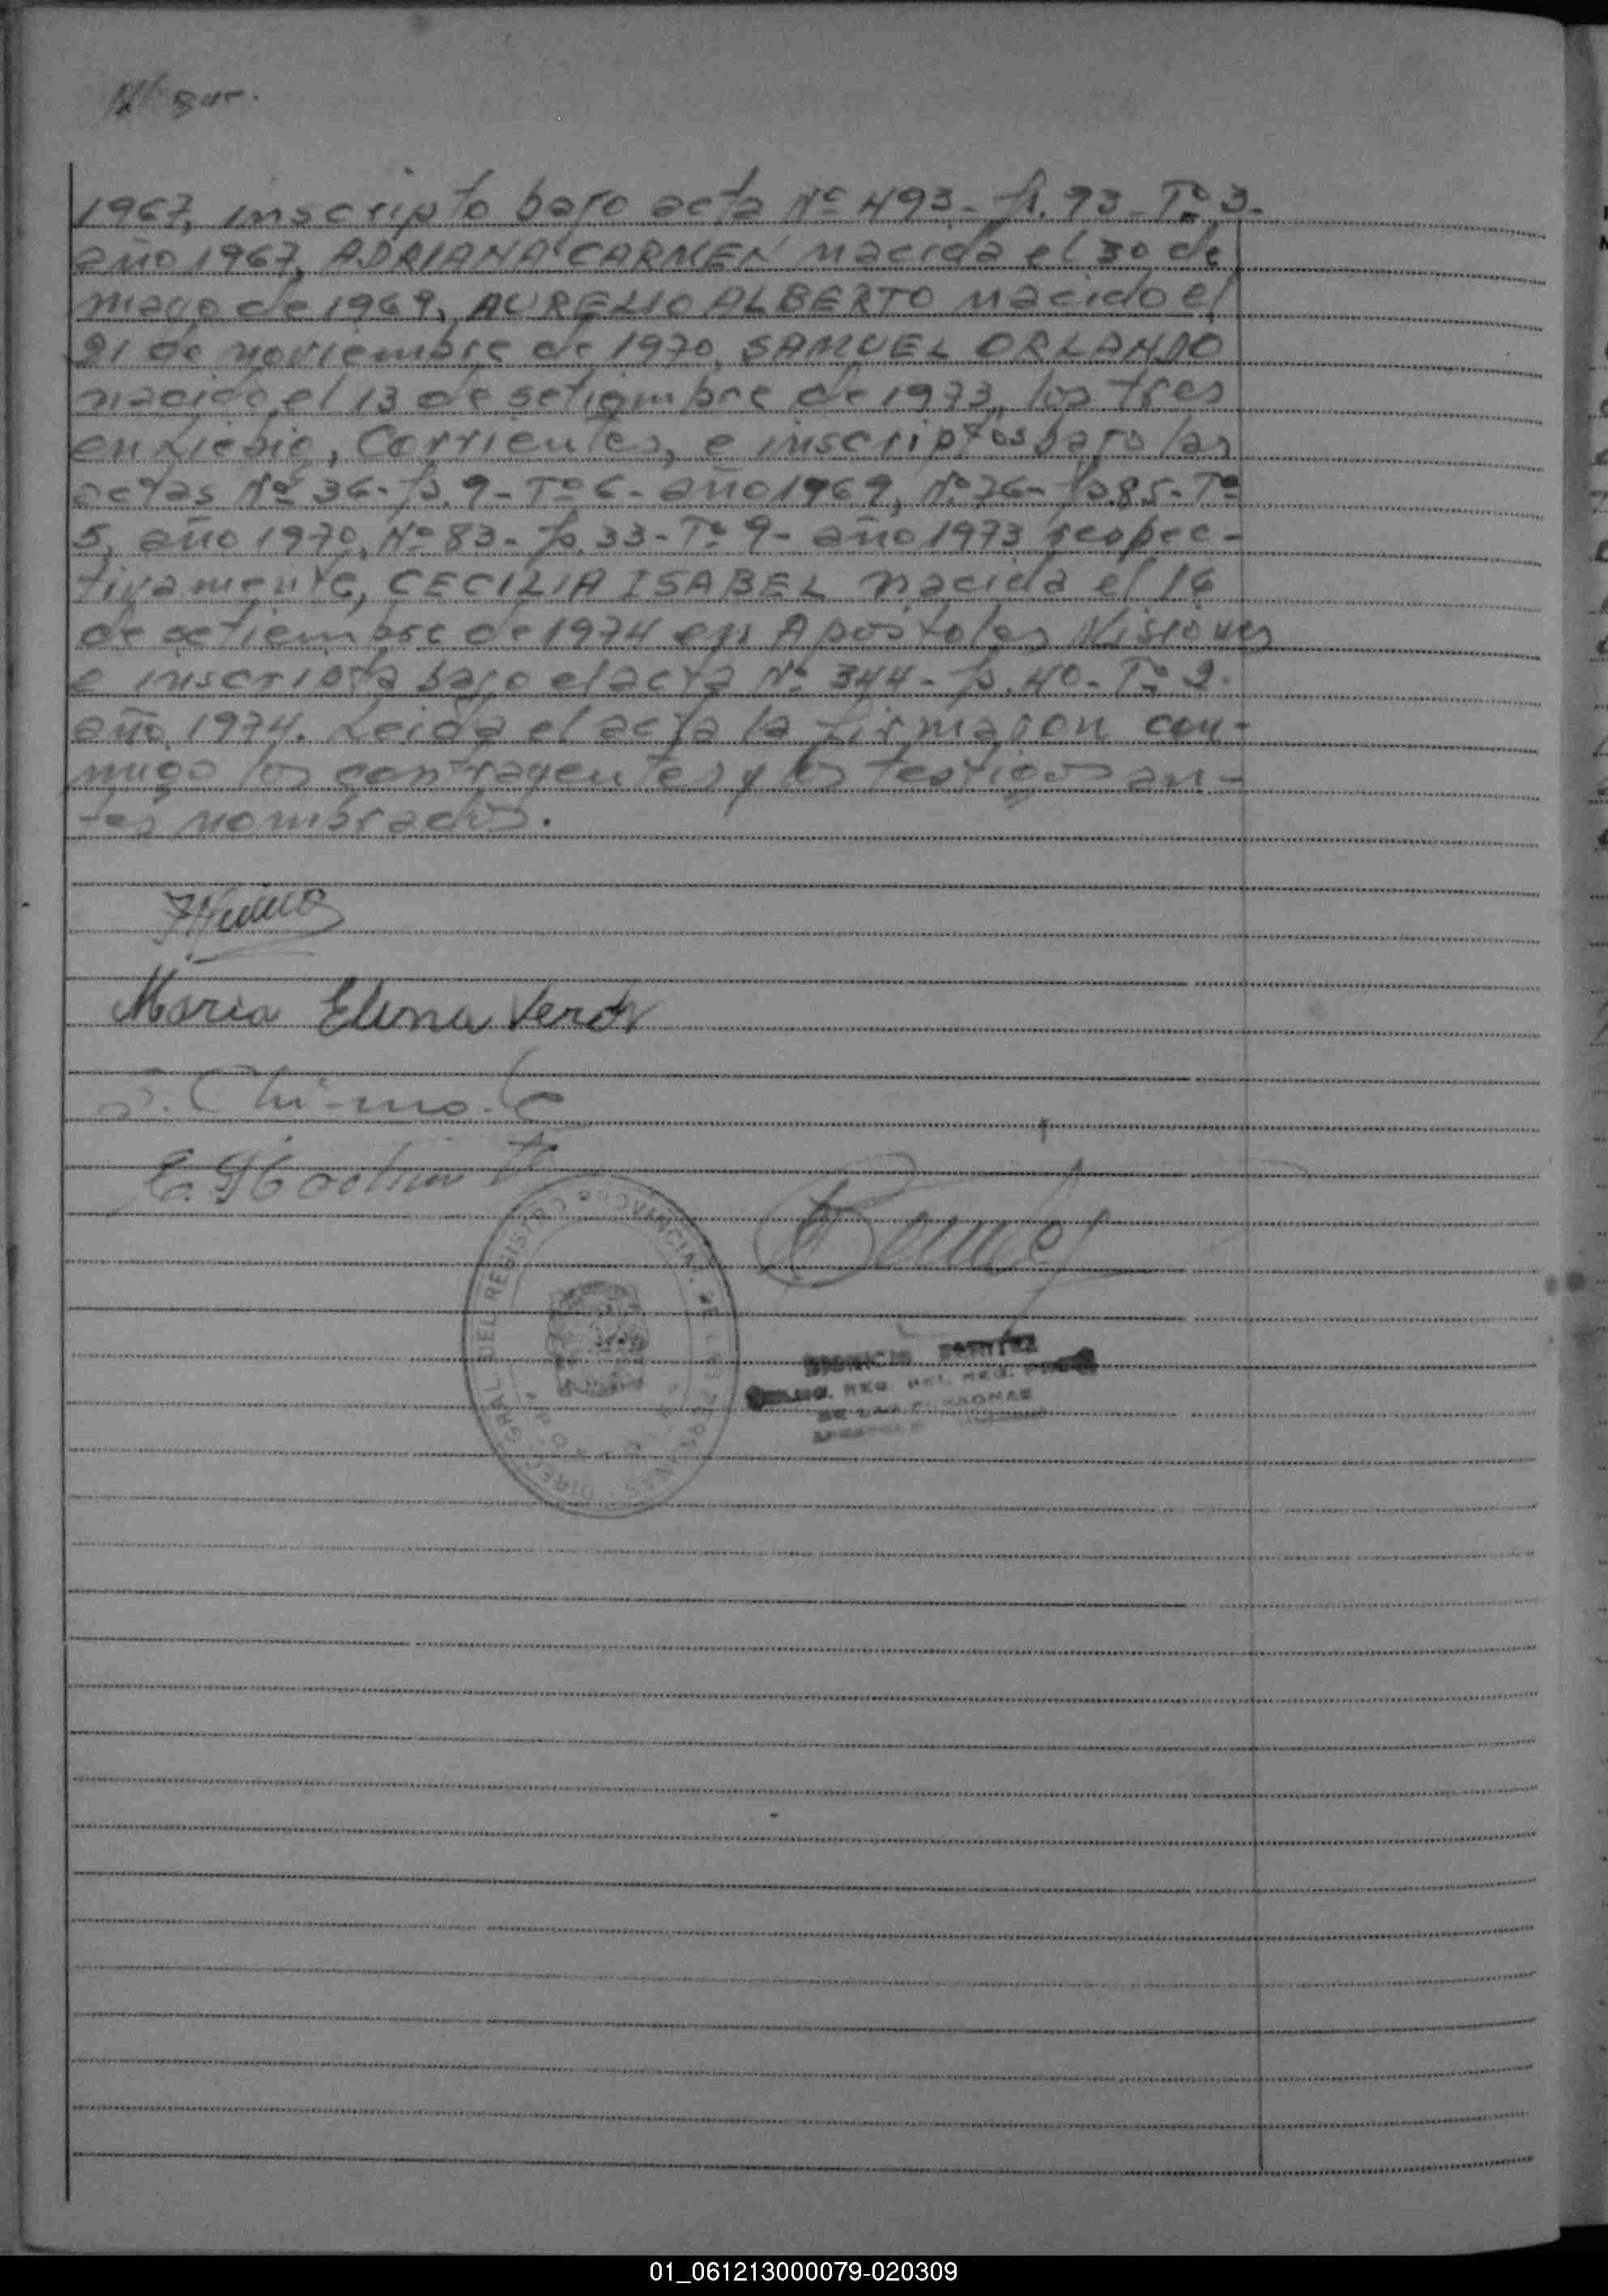 1967, inscripto bajo acta Nº 493- fs. 73- Tº 3-
año 1967, ADRIANA CARMEN nacida el 30 de
mayo de 1969, AURELIO ALBERTO nacido el
21 de noviembre de 1970, SAMUEL ORLANDO
nacido el 13 de setiembre de 1973, los tres
en Liebig, Corrientes, e inscriptos bajo las
actas Nº 36- fs. 9- Tº 6- año 1969, Nº 76- fs 85- Tº
5, año 1970, Nº 83- fs. 33- Tº 9- año 1973 respec-
tivamente, CECILIA ISABEL nacida el 16
de setiembre de 1974 en Apostoles Misiones
e inscripta bajo el acta Nº 344- fs. 40- Tº 2-
año 1974. Leida el acta la firmaron con-
migo los contrayentes y los testigos an-
tes nombrados.
Maria Elena Verón
DIREC. GRAL. DEL REGISTRO PROVINCIAL DE LAS PERSONAS
REG. DEL REG. PROV.
DE LAS PERSONAS
01_061213000079-020309